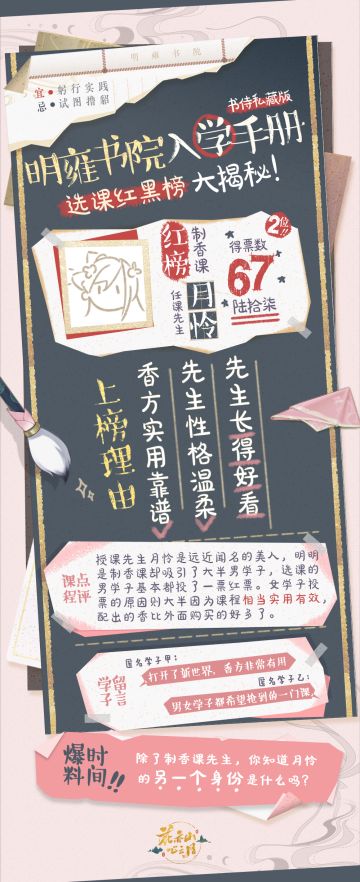 明雍书院
宜●躬行实践
忌●试图撸貂
书侍私藏版
明雍书院入学手册
选课红黑榜大揭秘!
红榜
2位!!
制香课
任课先生
月怜
得票数
67
陆拾柒
上榜理由
先生长得好看
先生性格温柔
香方实用靠谱
课程点评
授课先生月怜是远近闻名的美人，明明
是制香课却吸引了大半男学子，选课的
男学子基本都投了一票红票。女学子投
票的原因则大半因为课程相当实用有效，
配出的香比外面购买的好多了。
学子留言
匿名学子甲：
打开了新世界，香方非常有用
匿名学子乙：
男女学子都希望抢到的一门课
爆料时间!!
除了制香课先生，你知道月怜
的另一个身份是什么吗？
花亦山心之月